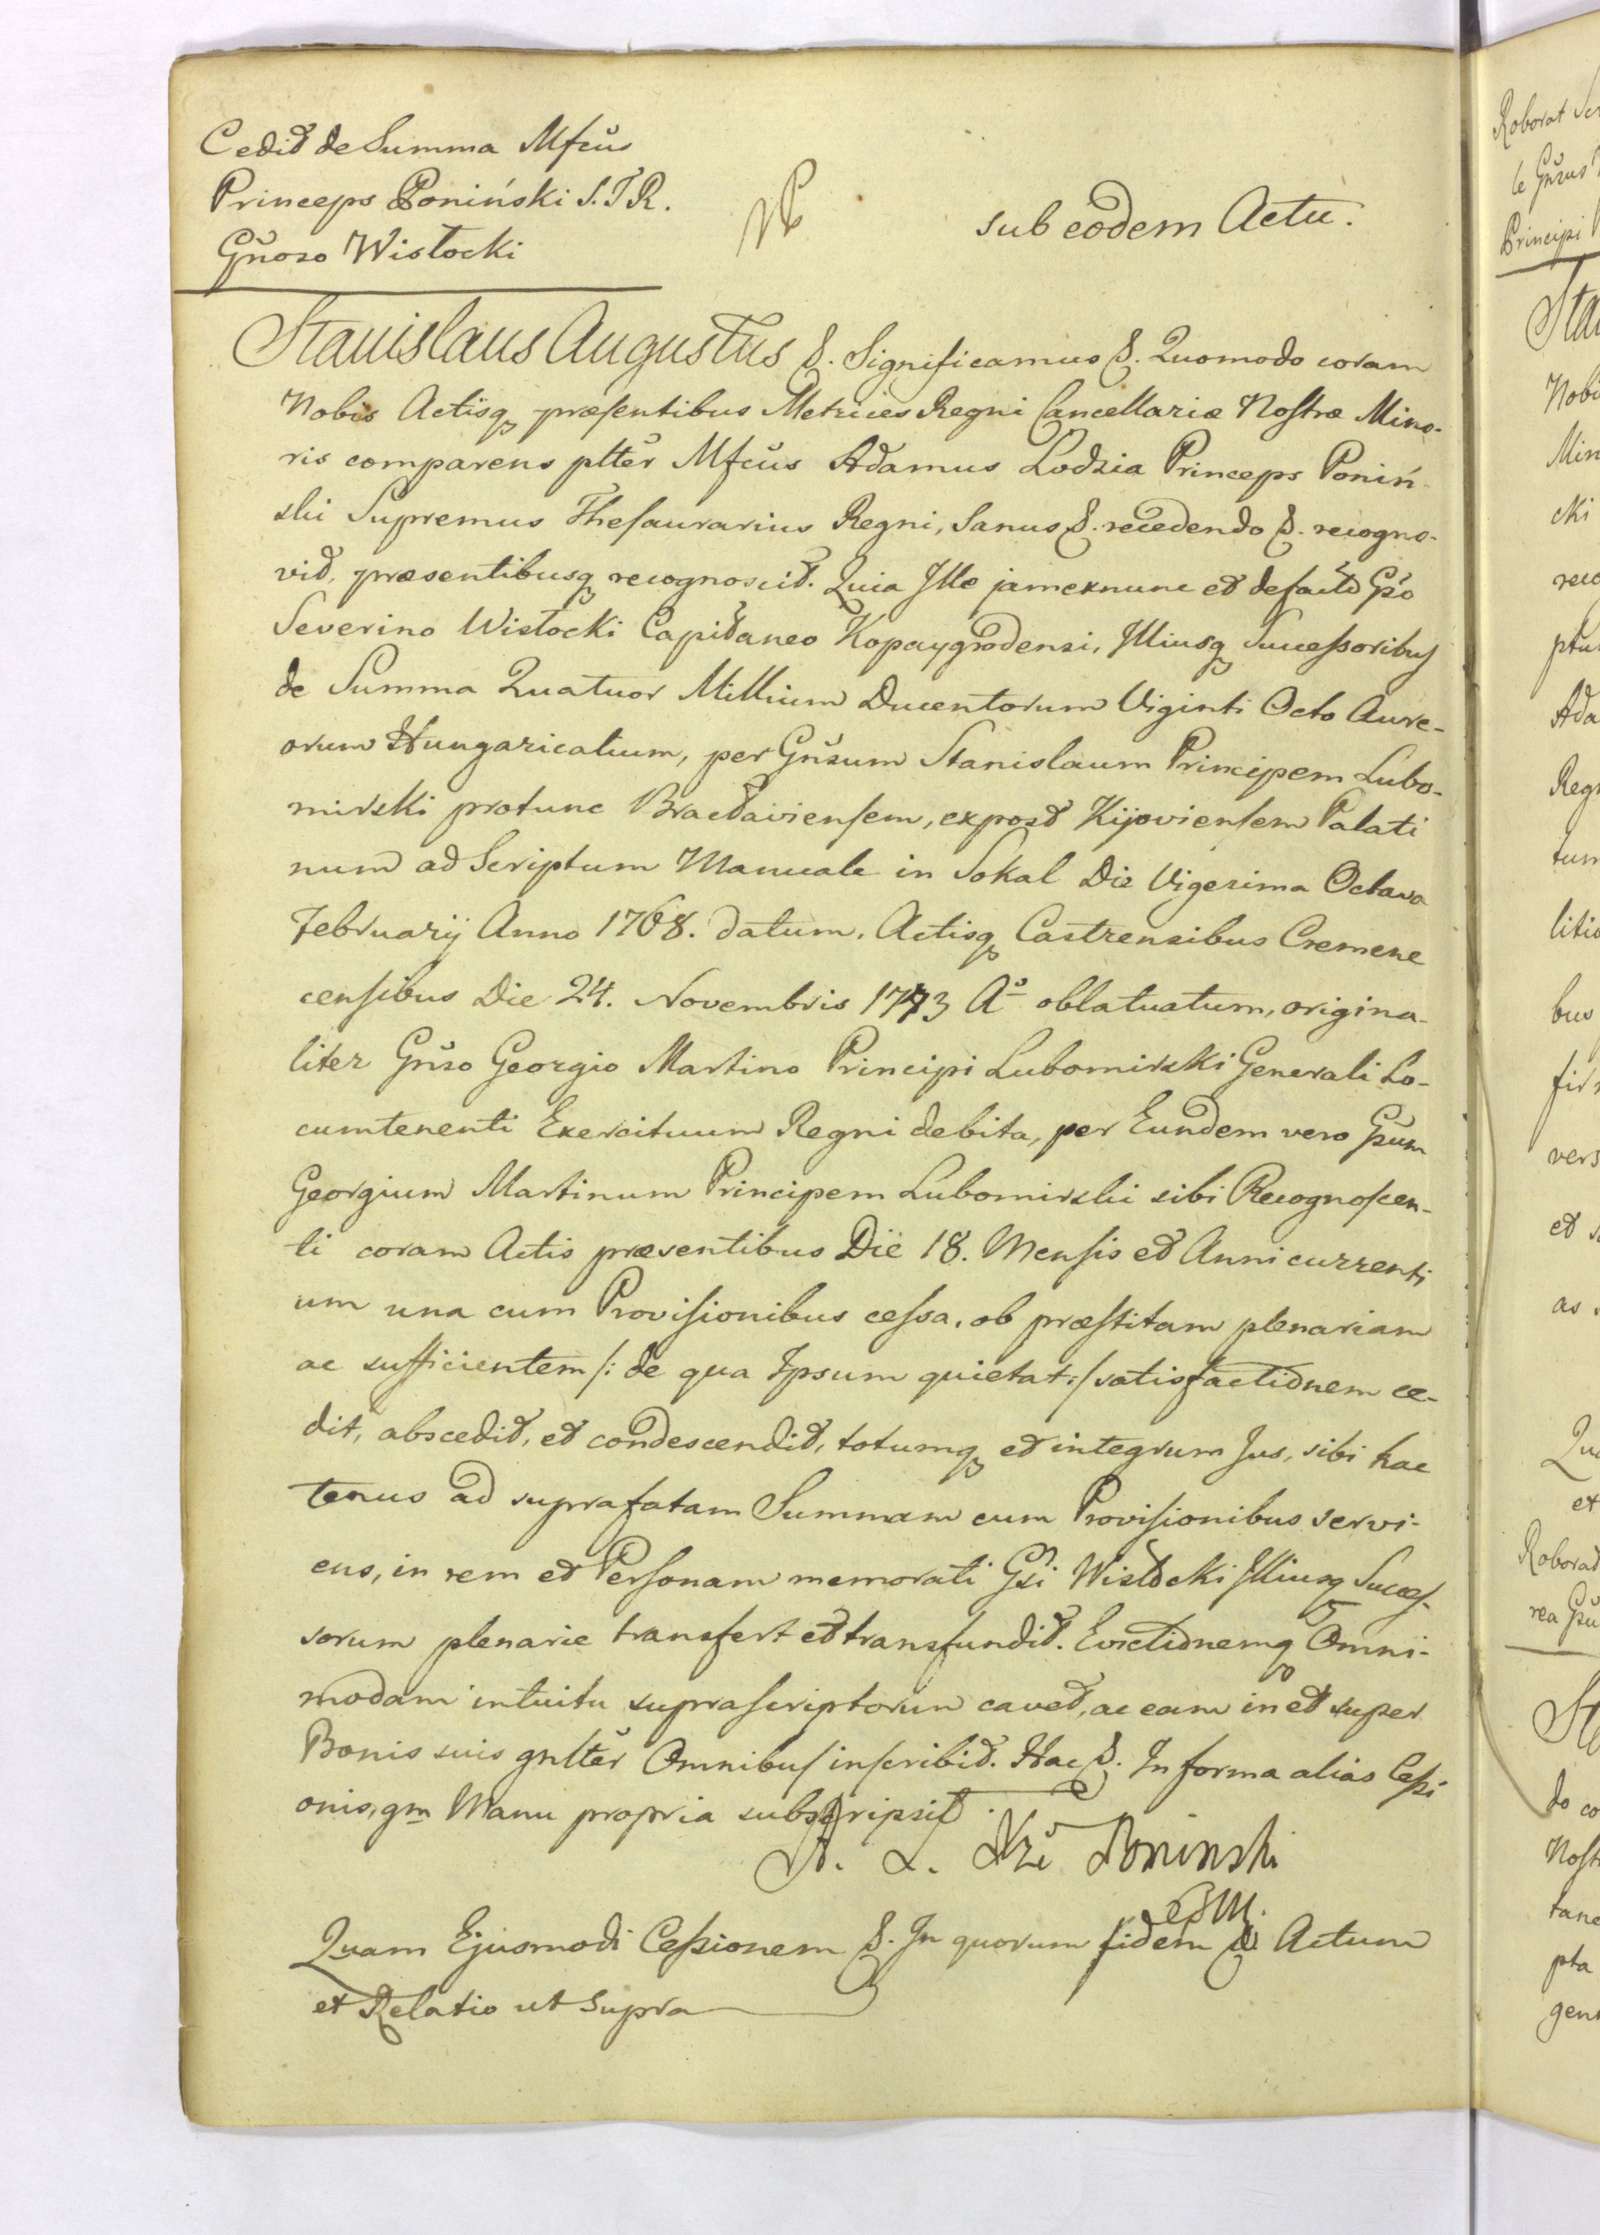 Cedit de Summa Mfcus
Princeps Poniński S. T. R.
Gnoso Wisłocki
sub eodem Actu.
Stanislaus Augustus &. Significamus &. Quomodo coram
Nobis Actisq præsentibus Metrices Regni Cancellariæ Nostræ Mino-
ris comparens pltter Mfcus Adamus Lodzia Princeps Poniń
ski Supremus Thesaurarius Regni, Sanus &. recedendo &. recogno-
vit, præsentibusq recognoscit. Quia Ille jam exnunc et defacto Gso
Severino Wisłocki Capitaneo Kopaygrodensi, Illiusq Successoribus
de Summa Quatuor Millium Ducentorum Viginti Octo Aure-
orum Hungaricalium, per Gnsum Stanislaum Principem Lubo-
mirski protunc Braclaviensem, expost Kijoviensem Palati
num ad Scriptum Manuale in Sokal Die Vigesima Octava
Februarij Anno 1768. datum, Actisq Castrensibus Cremene
censibus Die 24. Novembris 1773 Ao oblatuatum, origina-
liter Gnso Georgio Martino Principi Lubomirski Generali Lo-
cumtenenti Exercituum Regni debita, per Eundem vero Gsum
Georgium Martinum Principem Lubomirski sibi Recognoscen-
ti coram Actis præsentibus Die 18. Mensis et Anni currenti
um una cum Provisionibus cessa, ob præstitam plenariam
ac sufficientem /: de qua Ipsum quietat :/ satisfactionem ce-
dit, abscedit, et condescendit, totumq et integrum Jus, sibi hac
tenus ad suprafatam Summam cum Provisionibus servi-
ens, in rem et Personam memorati Gsi Wisłocki Illiusq Succes-
sorum plenarie transfert et transfundit. Evictionemq Omni-
modam intuitu suprascriptorum cavet, ac eam in et super
Bonis suis gnltter Omnibus inscribit. Hac &. In forma alias Cessi
onis, qm Manu propria subscripsit.
A. L. Xże Poninski
Quam Ejusmodi Cessionem &. In quorum fidem &. Actum
et Relatio ut supra